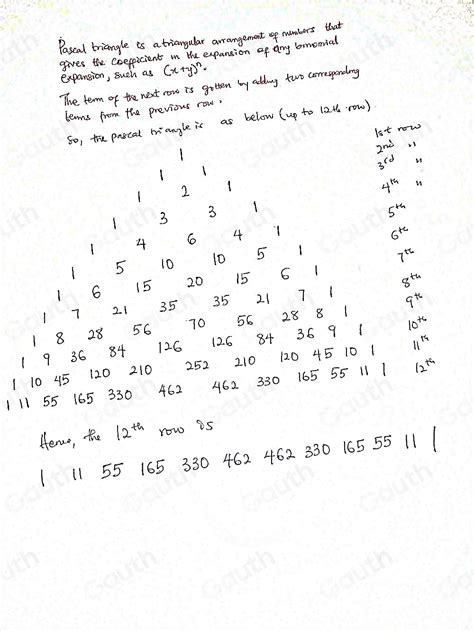 Pascal triangle is a triangular arrangement of numbers that
gives the coefficient in the expansion of any binomial
expansion, such as (x+y)ⁿ.
The term of the next row is gotten by adding two corresponding
terms from the previous row.
So, the pascal triangle is as below (up to 12th row)
1 1st row
1 1 2nd "
1 2 1 3rd "
1 3 3 1 4th "
1 4 6 4 1 5th
1 5 10 10 5 1 6th
1 6 15 20 15 6 1 7th
1 7 21 35 35 21 7 1 8th
1 8 28 56 70 56 28 8 1 9th
1 9 36 84 126 126 84 36 9 1 10th
1 10 45 120 210 252 210 120 45 10 1 11th
1 11 55 165 330 462 462 330 165 55 11 1 12th
Hence, the 12th row is
1 11 55 165 330 462 462 330 165 55 11 1
Gauth